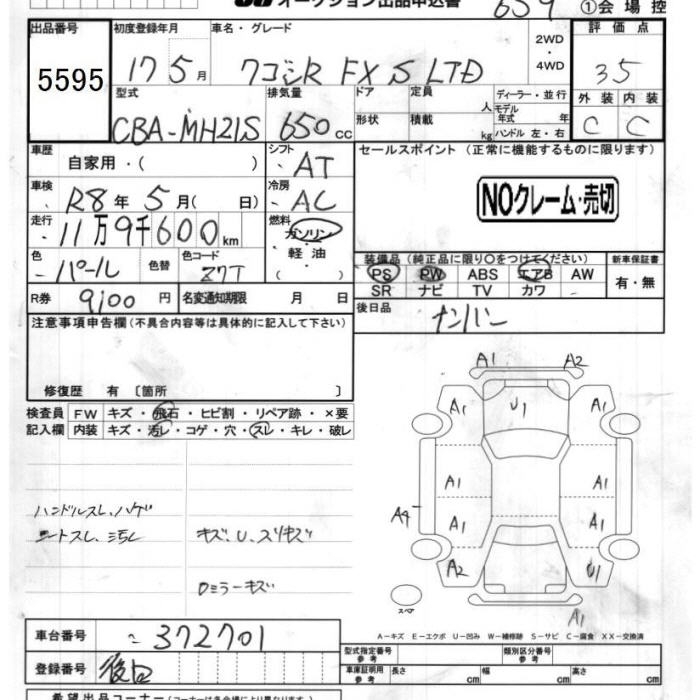 オークション出品申込書 659 ①会場控
出品番号 初度登録年月 車名・グレード 2WD ・4WD 評価点
5595 17 5月 ワゴンR FX S LTD 3.5
型式 排気量 ドア 定員 人 ディーラー・並行 外装 内装
CBA-MH21S 650cc 形状 積載 kg モデル年式 年 ハンドル 左・右 C C
車歴 自家用・( ) シフト AT セールスポイント (正常に機能するものに限ります)
車検 R8年 5月( 日) 冷房 AC NOクレーム・売切
走行 11万9千600km 燃料 ガソリン・軽油・( )
色 パール 色替 色コード Z7T 装備品(純正品に限り〇をつけてください) 新車保証書
PS PW ABS エアB AW 有・無
SR ナビ TV カワ
R券 9100円 名変通知期限 月 日 後日品 ナンバー
注意事項申告欄(不具合内容等は具体的に記入して下さい)
修復歴 有 〔箇所 〕
検査員 FW キズ・飛石・ヒビ割・リペア跡・×要
記入欄 内装 キズ・汚レ・コゲ・穴・スレ・キレ・破レ
A1 A2
A1 U1 A1
A1 A1
A4 A1 A1
A2 U1
A1
スペア
ハンドルスレ、ハゲ
シートスレ、ミ汚レ キズ、U、スリキズ
ロミラーキズ
A-キズ E-エクボ U-凹み W-補修跡 S-サビ C-腐食 XX-交換済
車台番号 372701 型式指定番号 参考 類別区分番号 参考
登録番号 後日 車庫証明用 参考 長さ cm 幅 cm 高さ cm
希望出品コーナー(コーナーは各会場により異なります。)